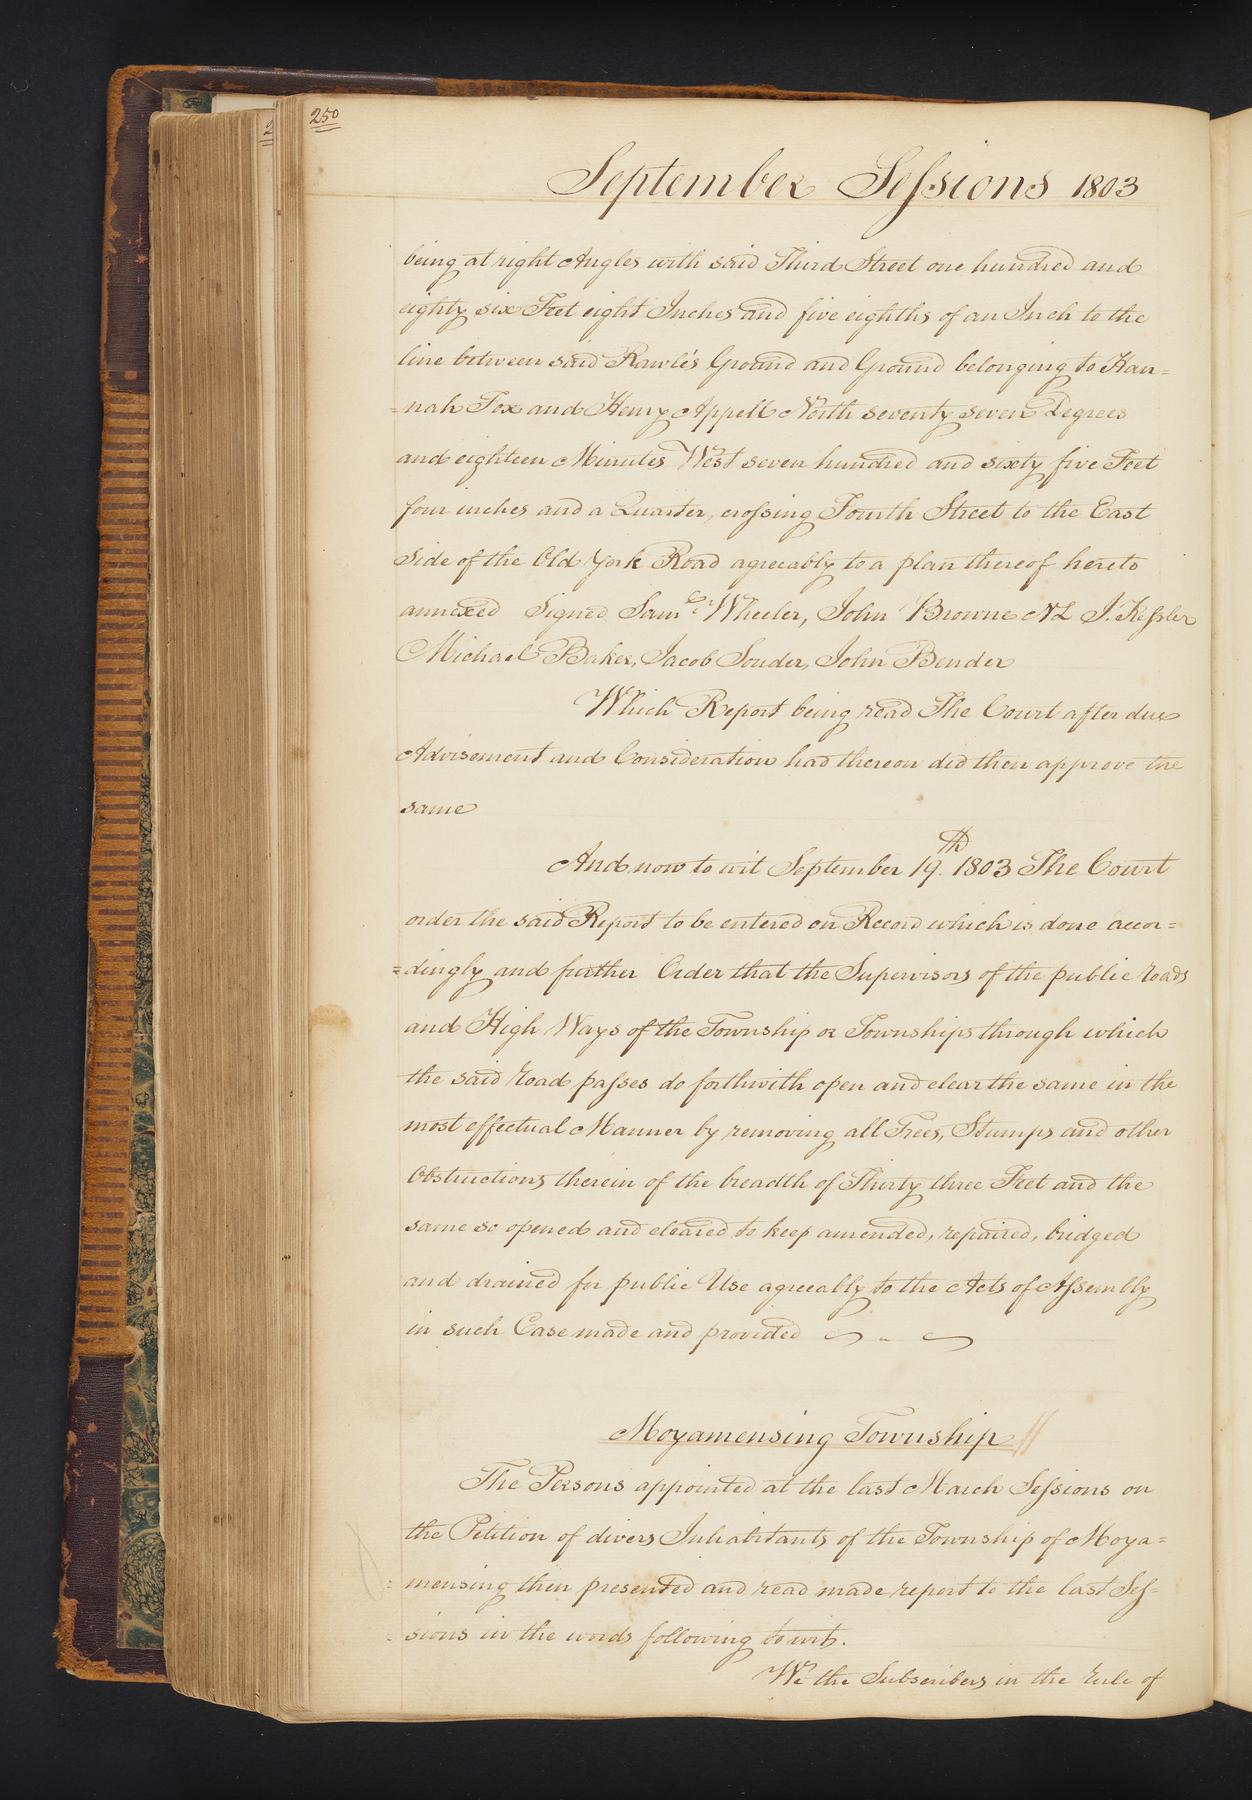 250
September Sessions 1803
being at right Angles with said Third Street one hundred and
eighty six Feet eight Inches and five eighths of an Inch to the
line between said Rawle's Ground and Ground belonging to Han=
=nah Fox and Henry Appell North seventy seven Degrees
and eighteen Minutes West seven hundred and sixty five Feet
four inches and a Quarter, crossing Fourth Street to the East
Side of the Old York Road agreeably to a plan thereof hereto
annexed Signed Sam.l Wheeler, John Browne NL J. Kessler
Michael Baker, Jacob Souder, John Bender
Which Report being read The Court after due
Advisement and Consideration had thereon did then approve the
same
And now to wit September 19.th 1803 The Court
order the said Report to be entered on Record which is done accor=
=dingly and further Order that the Supervisors of the public roads
and High Ways of the Township or Townships through which
the said road passes do forthwith open and clear the same in the
most effectual Manner by removing all Trees, Stumps and other
Obstructions therein of the breadth of Thirty three Feet and the
same so opened and cleared to keep amended, repaired, bridged
and drained for public Use agreeably to the Acts of Assembly
in such Case made and provided
Moyamensing Township
The Persons appointed at the last March Sessions on
the Petition of divers Inhabitants of the Township of Moya=
=mensing then presented and read made report to the last Ses=
=sions in the words following to wit.
We the Subscribers in the rule of